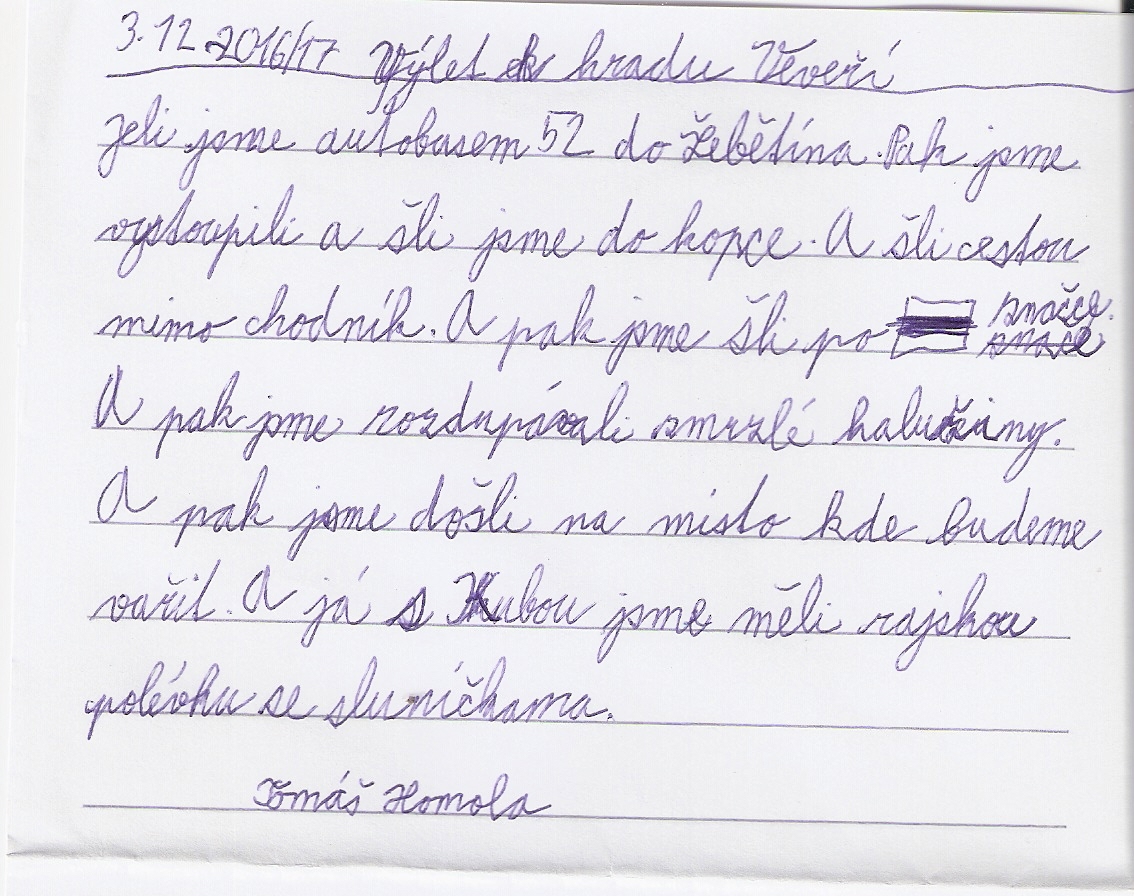 3.12 2016/17 Výlet k hradu Veveří
Jeli jsme autobusem 52 do Žebětína. Pak jsme
vystoupili a šli jsme do kopce. A šli cestou
mimo chodník. A pak jsme šli po značce.
A pak jsme rozdupávali zmrzlé kalužiny.
A pak jsme došli na místo kde budeme
vařit. A já s Kubou jsme měli rajskou
polévku se sluníčkama.
Tomáš Homola